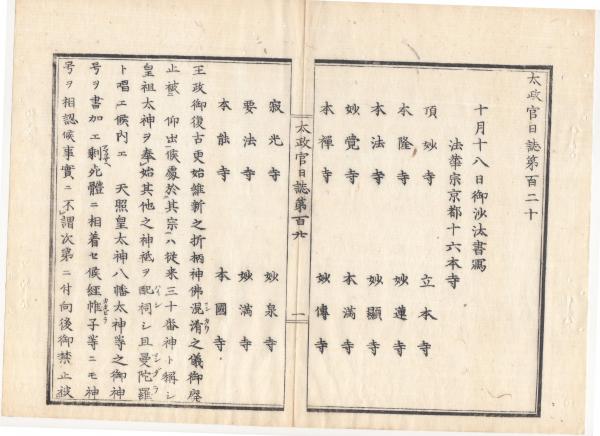 太政官日誌第百二十
十月十八日御沙汰書寫
法華宗京都十六本寺
頂妙寺 立本寺
本隆寺 妙蓮寺
本法寺 妙顯寺
妙覚寺 本満寺
本禪寺 妙傳寺
太政官日誌第百廿 一
寂光寺 妙泉寺
要法寺 妙満寺
本能寺 本國寺
王政御復古更始維新之折柄神佛混淆之儀御廢
止被 仰出候處於其宗ハ從来三十番神ト稱シ
皇祖太神ヲ奉始其他之神祇ヲ配祠シ且曼陀羅
ト唱エ候内エ 天照皇太神八幡太神等之御神
号ヲ書加エ剩死體ニ相着セ候經帷子等ニモ神
号ヲ相認候事實ニ不謂次第ニ付向後御禁止被